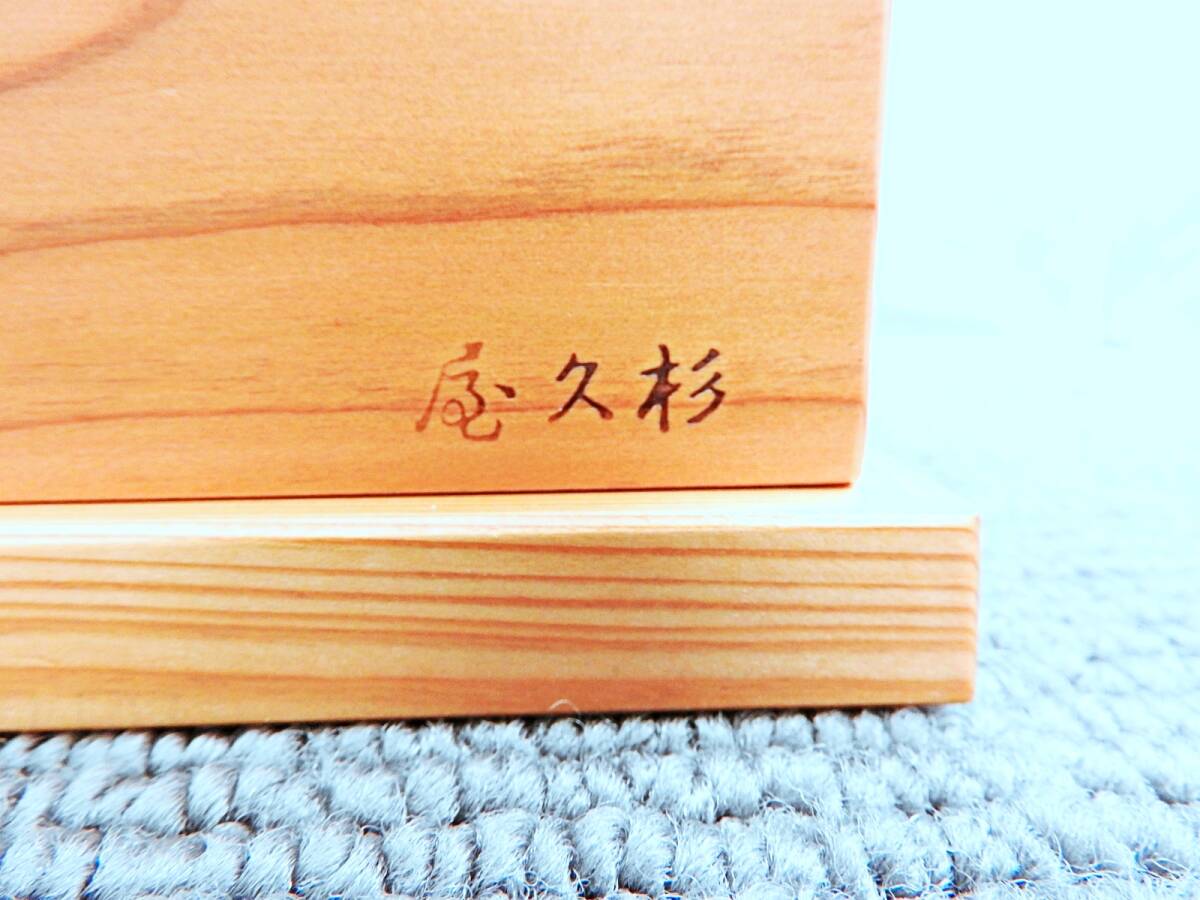 屋久杉